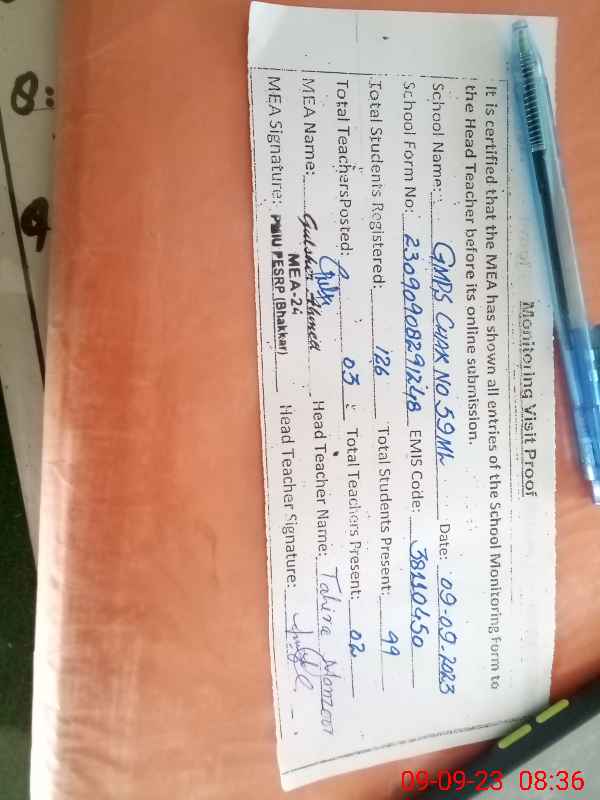 Monitoring Visit Proof
It is certified that the MEA has shown all entries of the School Monitoring Form to
the Head Teacher before its online submission.
School Name: GMPS Chak No 59ML Date: 09-09-2023
School Form No: EMIS Code: 38110450
Total Students Registered: 126 Total Students Present: 99
Total Teachers Posted: 03 Total Teachers Present: 02
MEA Name: Gulsher Ahmed Head Teacher Name: Tahira Manzoor
MEA-24
MEA Signature: PMIU PESRP (Bhakkar) Head Teacher Signature:
09-09-23 08:36